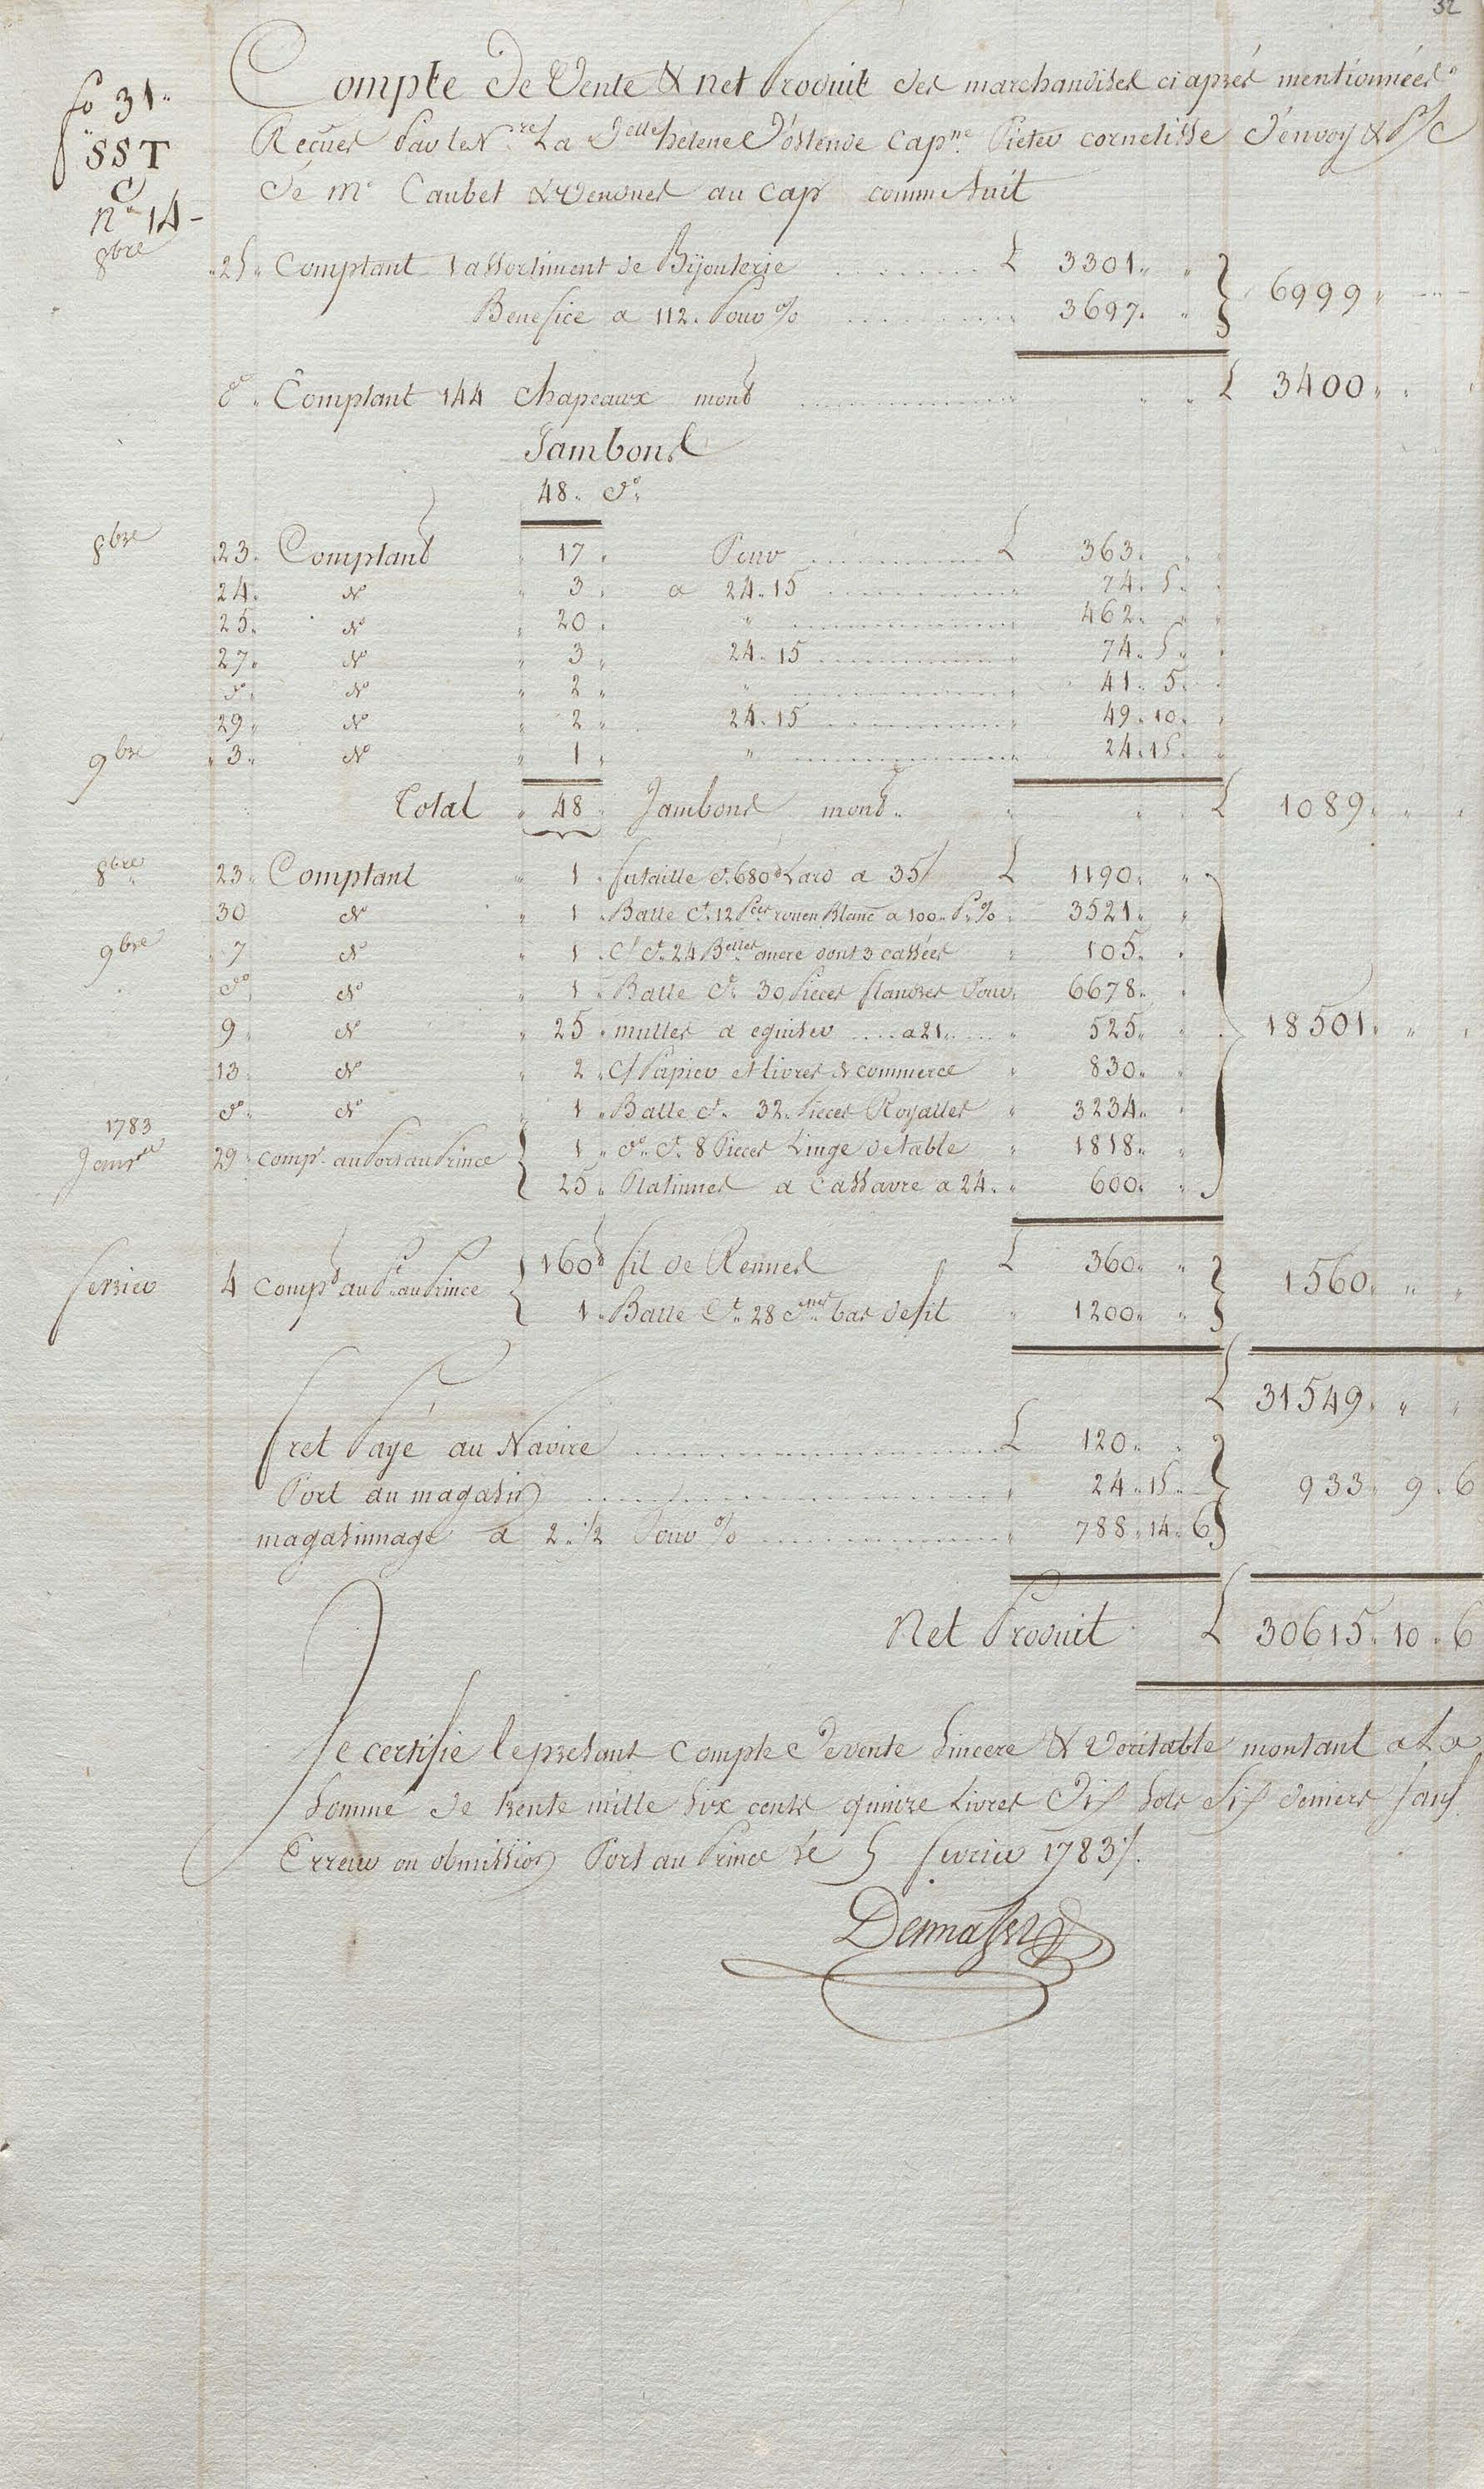 32
fo 31.
SST
C
No 14
Compte De Vente & net Produit des marchandises ci aprés mentionnées
Reçues Par le Nre La Delle helene D'ostende Capne Pieter cornelisse D'envoy & P/C
De Mr Caubet & Vendues au Cap comme Suit
8bre 25 Comptant 1 assortiment de Bijouterie £ 3301
Benefice a 112 Pour % 3697 } 6999
do Comptant 144 chapeaux mont £ 3400
Jambons
48 do
8bre 23 Comptant 17 Pour £ 363
24 No 3 a 24.15 74.5
25 No 20 " 462
27 No 3 24.15 74.5
do No 2 " 41.5
29 No 2 24.15 49.10
9bre 3 No 1 " 24.15
Total 48 Jambons mont £ 1089
8bre 23 Comptant 1 futaille Ct 680 Lard a 35/ £ 1190
30 No 1 Balle Ct 12 Pces rouen Blanc a 100 P% 3521
9bre 7 No 1 C/ Ct 24 Belles ancre dont 3 cassées 105
do No 1 Balle Ct 30 Pieces flandres Pour 6678
9 No 25 mulles a eguiser a 21 525 } 18501
13 No 2 C/ Papier et livres de commerce 830
do No 1 Balle Ct 32 Pieces Royalles 3234
1783
Janvier 29 Compt au Port au Prince { 1 do Ct 8 Pieces Linge de table 1818
25 Platinnes a Cassavre a 24 600
fevrier 4 Compt au Pt au Prince { 160 fil de Rennes £ 360
1 Balle Ct 28 dnes bas de fil 1200 } 1560
£ 31549
fret Payé au Navire £ 120
Port au magasin 24.15 } 933.9.6
magasinnage a 2 1/2 Pour % 788.14.6
Net Produit £ 30615.10.6
Je certifie le present Compte de vente Sincere & Veritable montant a La
Somme de trente mille Six cents quinze Livres Dix Sols Six deniers Sauf
Erreur ou obmission Port au Prince Le 5 fevrier 1783